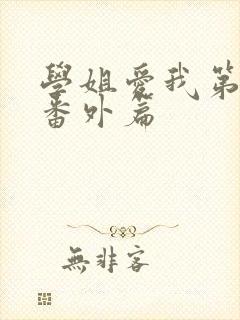 學姐愛我第
番外篇
無非客